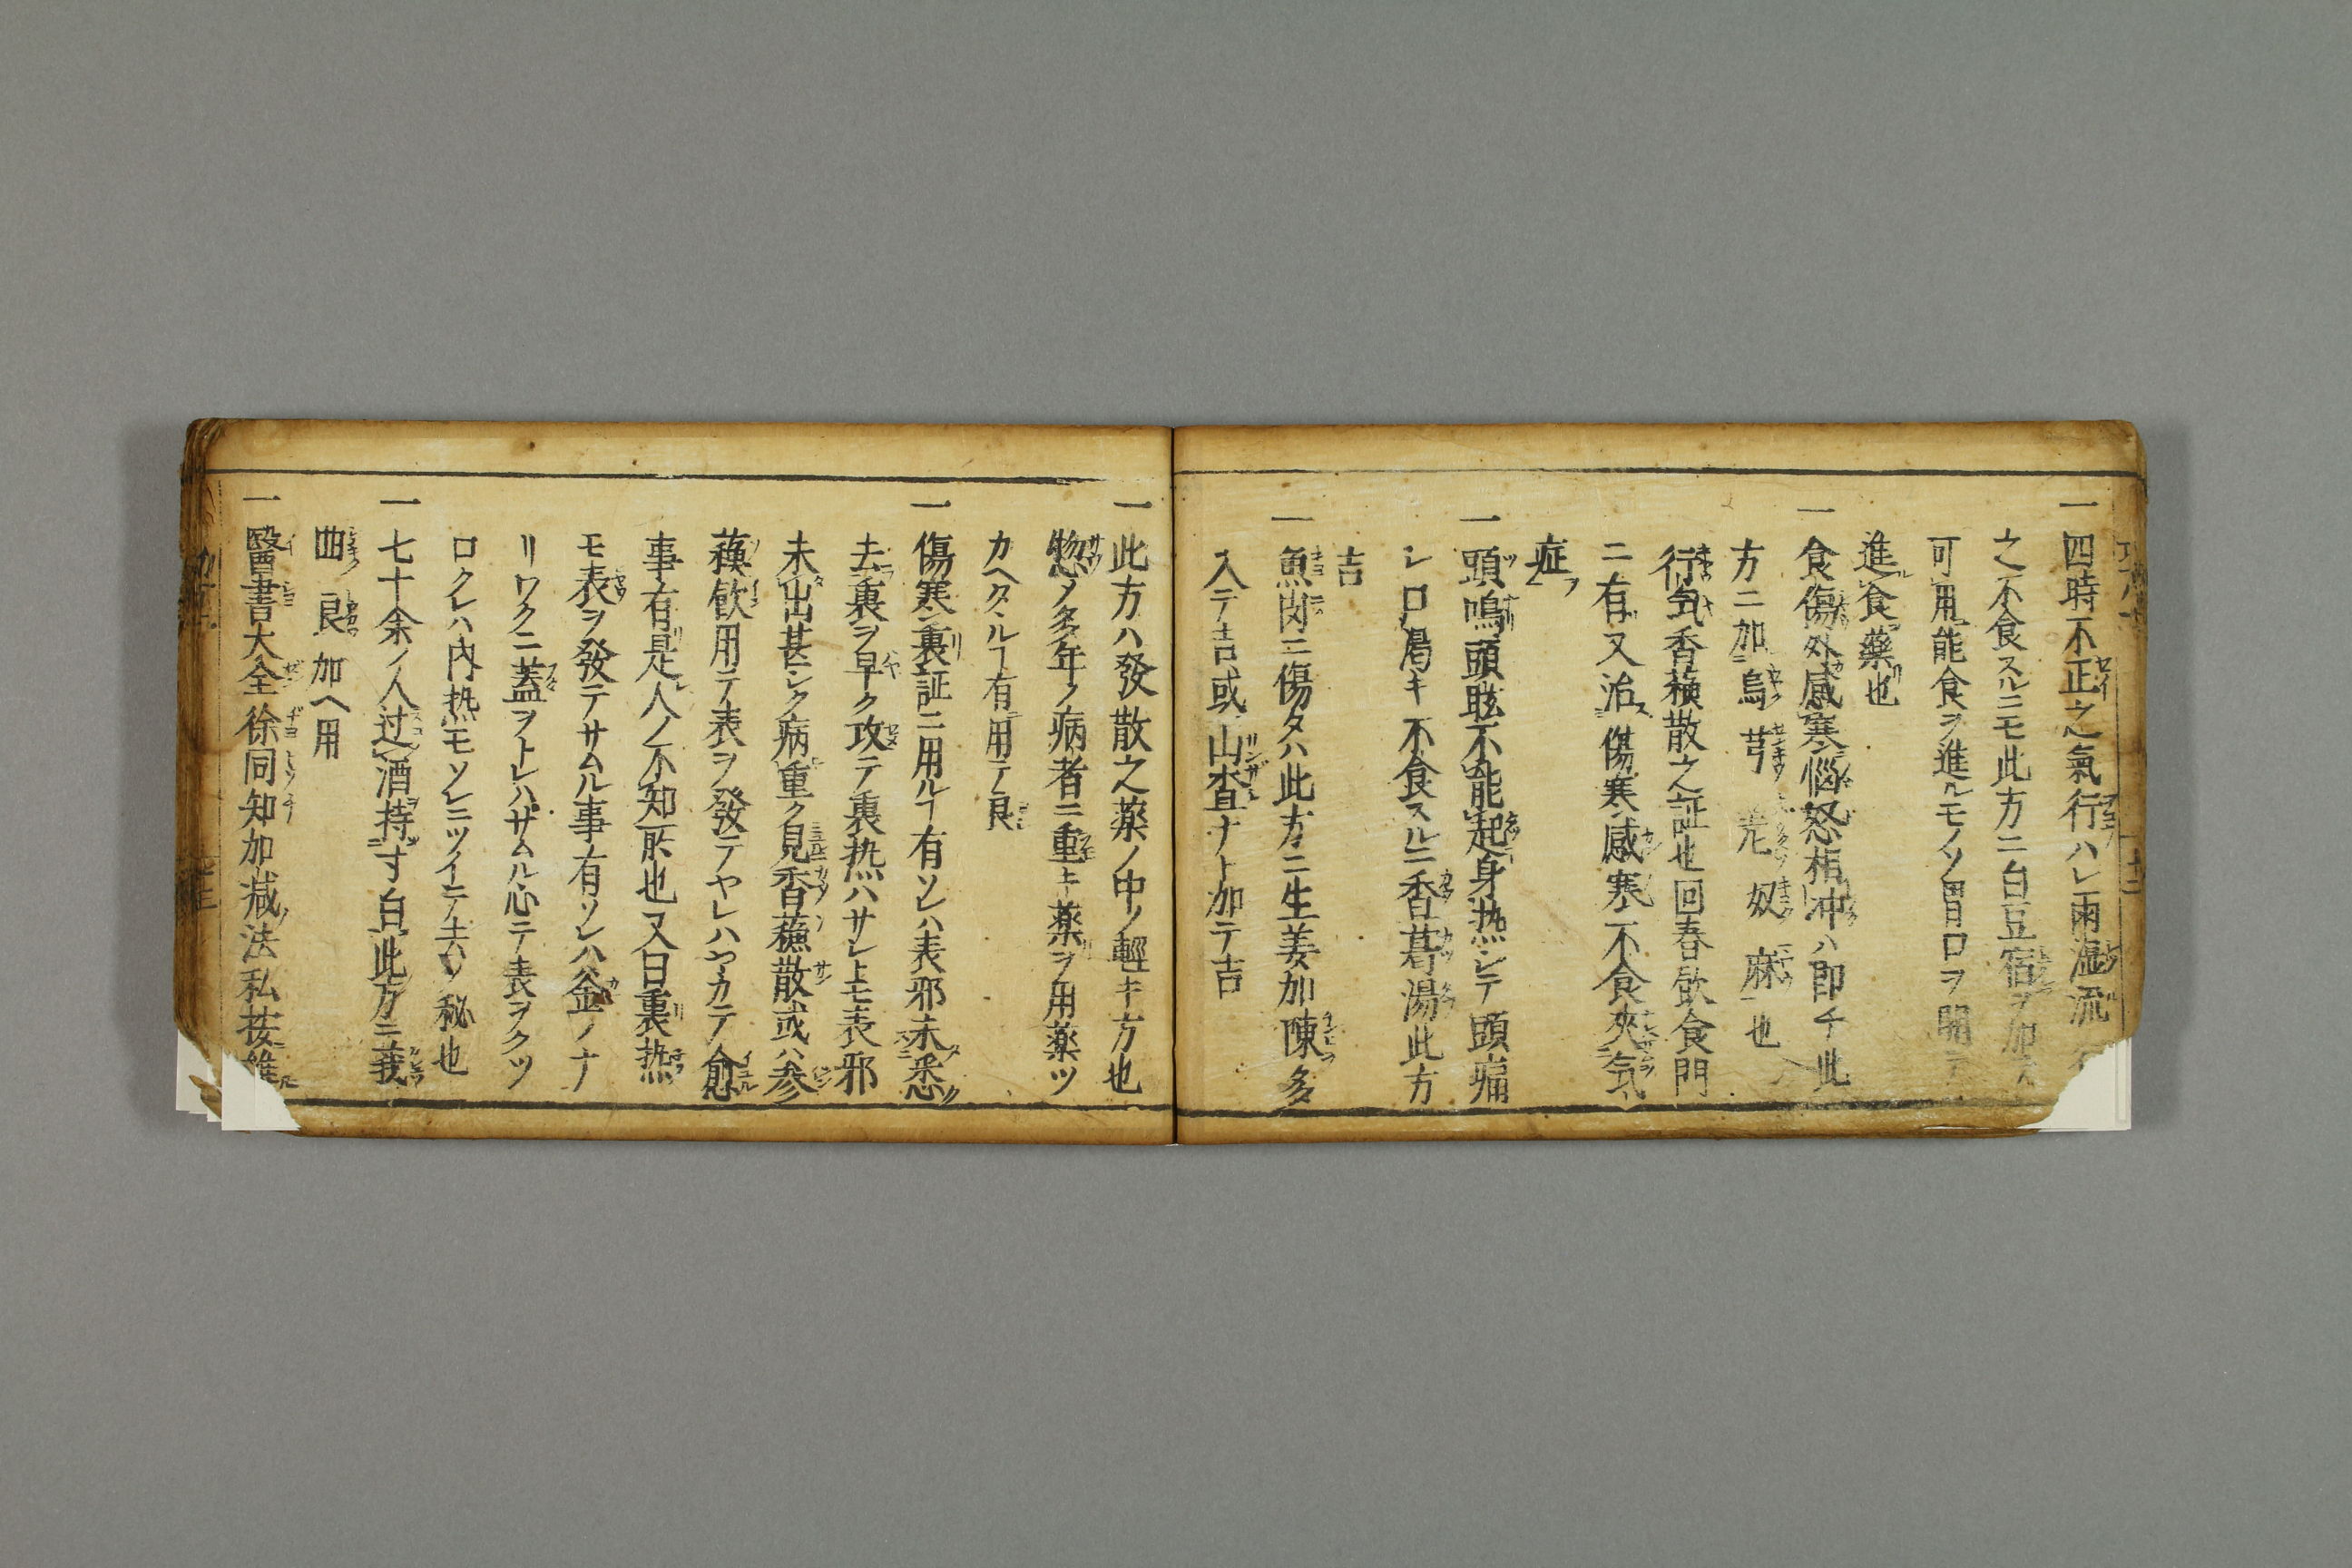 一四時不正之氣行ハレ雨湿流
之不食スルニモ此方ニ白豆宿ヲ加
可用能食ヲ進ルモノソ胃口ヲ開
進食藥也
一食傷外感寒惱怒相冲ハ即チ此
方ニ加烏芎 奴麻也
行気香蘓散之証也回春飲食門
ニ有又治傷寒感寒不食夾気
症
一頭鳴頭眩不能起身熱シテ頭痛
シ口渇キ不食スルニ香葛湯此方
吉
一魚肉ニ傷タハ此方ニ生姜加陳多
入テ吉或山査ナト加テ吉
一此方ハ發散之薬ノ中ノ軽キ方也
惣〆多年ノ病者ニ重キ薬ヲ用薬ツ
カヘタルヿ有用テ良
一傷寒裏証ニ用ルヿ有ソレハ表邪未悉
去裏ヲ早ク攻テ裏熱ハサレトモ表邪
未出甚シク病重ク見香蘓散或ハ参
蘓飲用テ表ヲ發テヤレハヤカテ愈
事有是人ノ不知所也又曰裏熱
モ表ヲ發テサムル事有ソレハ釜ノナ
リワクニ蓋ヲトレハサムル心テ表ヲクツ
ロクレハ内熱モソレニツイテ去ソ秘也
一七十余ノ人过酒持寸白此方ニ莪
曲 良 加ヘ用
一醫書大全徐同知加减法私按雖